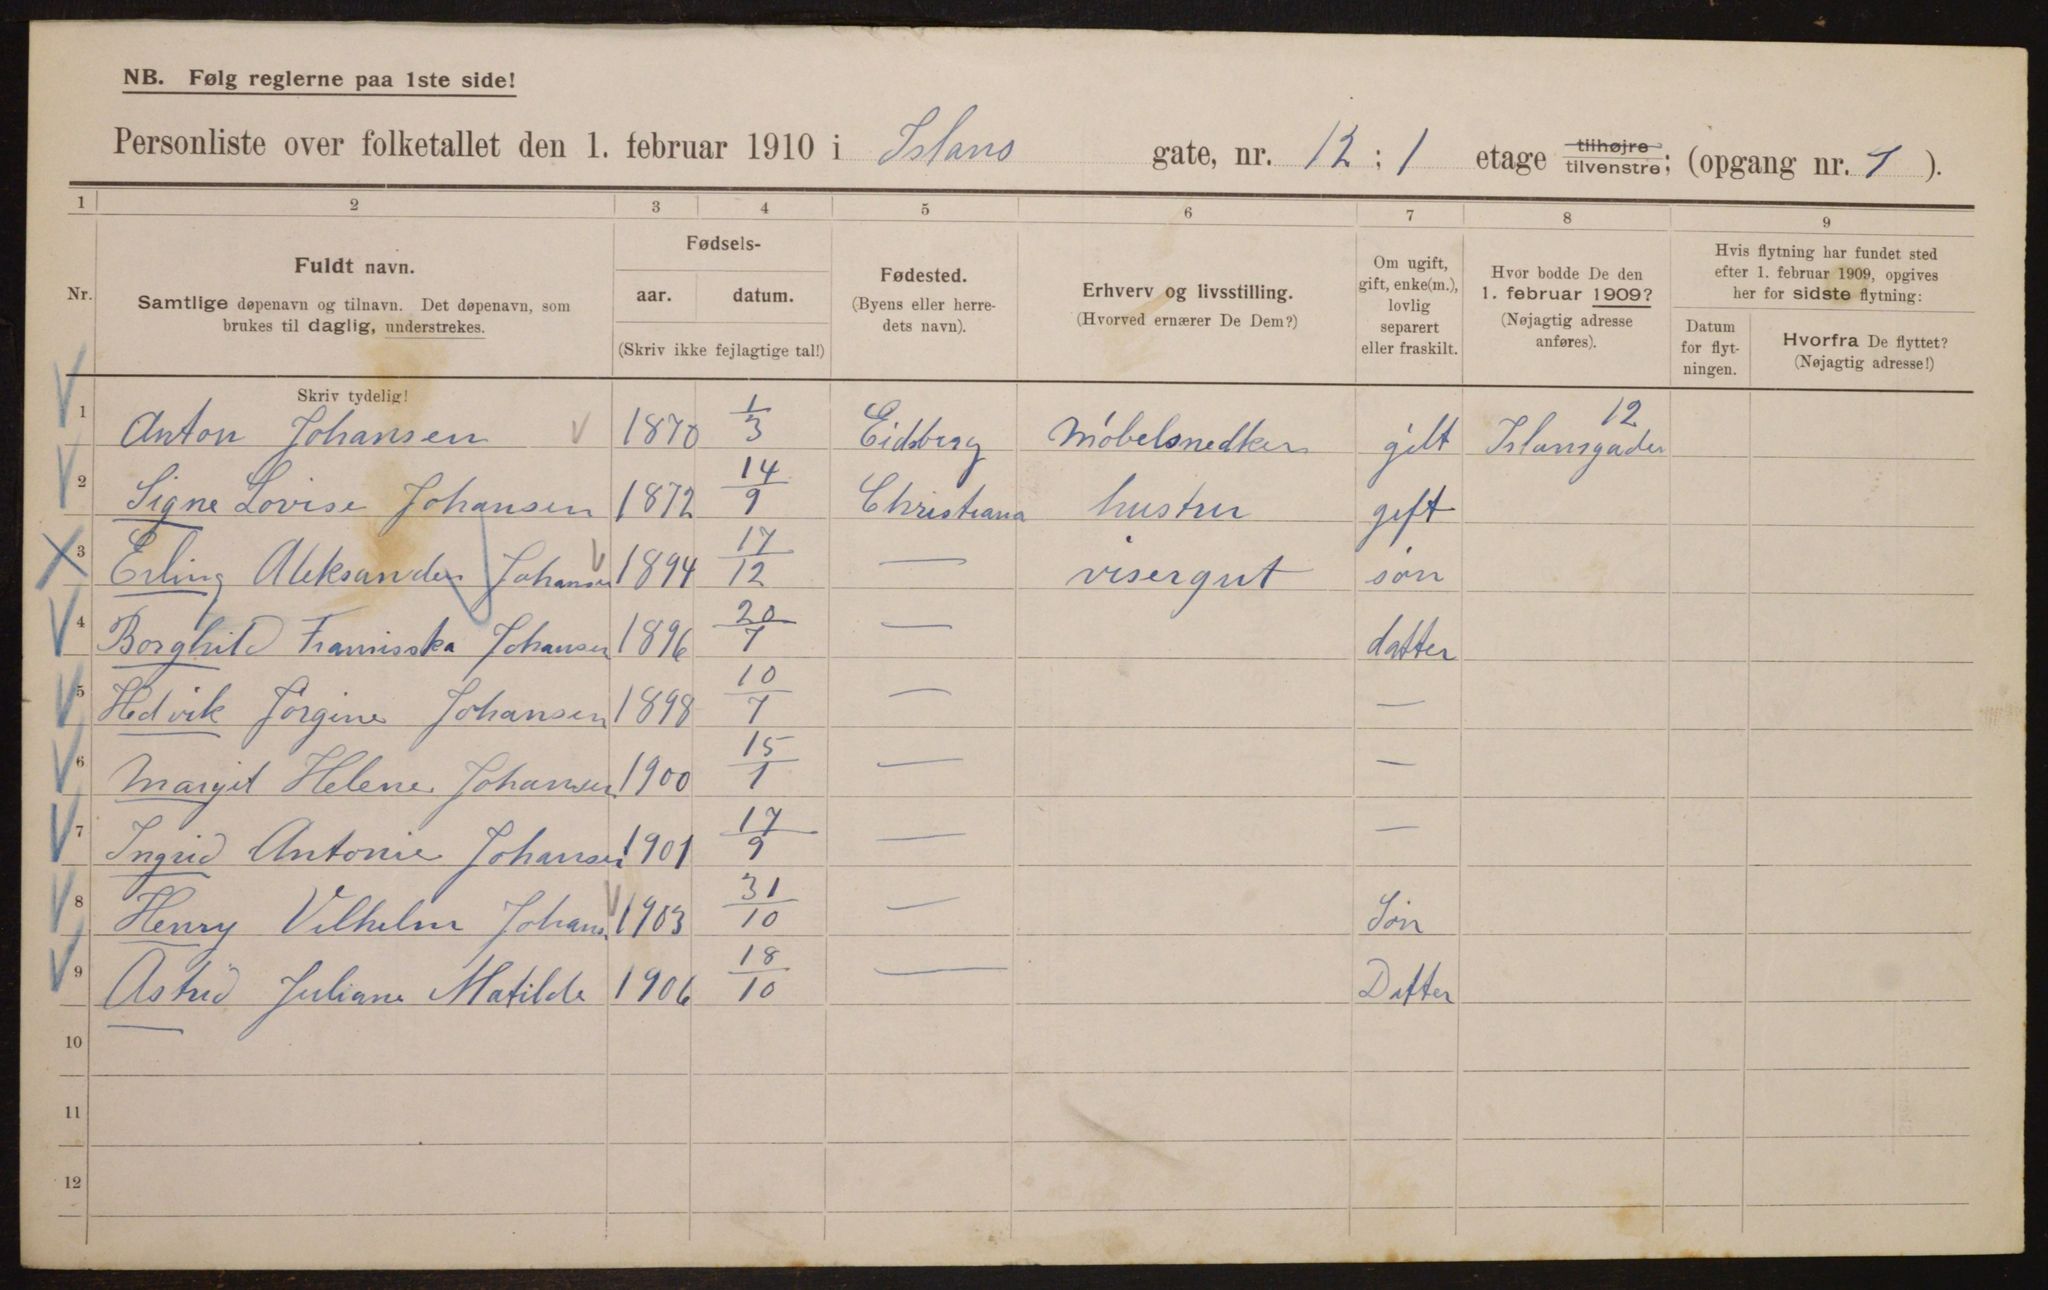 NB. Følg reglerne paa 1ste side!
Personliste over folketallet den 1. februar 1910 i Islans gate, nr. 12 ; 1 etage tilhøjre tilvenstre; (opgang nr. 1 ).
1 2 3 4 5 6 7 8 9
Nr.
Fuldt navn.
Samtlige døpenavn og tilnavn. Det døpenavn, som
brukes til daglig, understrekes.
Skriv tydelig!
Fødsels-
aar. datum.
(Skriv ikke fejlagtige tal!)
Fødested.
(Byens eller herre-
dets navn).
Erhverv og livsstilling.
(Hvorved ernærer De Dem?)
Om ugift,
gift, enke(m.),
lovlig
separert
eller fraskilt.
Hvor bodde De den
1. februar 1909?
(Nøjagtig adresse
anføres).
Hvis flytning har fundet sted
efter 1. februar 1909, opgives
her for sidste flytning:
Datum
for flyt-
ningen.
Hvorfra De flyttet?
(Nøjagtig adresse!)
1 Anton Johansen 1870 1/3 Eidsberg Möbelsnedker gift Islansgaden 12
2 Signe Lovise Johansen 1872 14/9 Christiana hustru gift
3 Erling Aleksander Johansen 1894 17/12 — visergut søn
4 Borghild Fransisska Johansen 1896 20/7 — datter
5 Hedvik Jörgine Johansen 1898 10/7 — —
6 Margit Helene Johansen 1900 15/1 — —
7 Ingrid Antonie Johansen 1901 17/9 — —
8 Henry Vilhelm Johans 1903 31/10 — Søn
9 Astrid Juliane Matilde 1906 18/10 — Datter
10
11
12